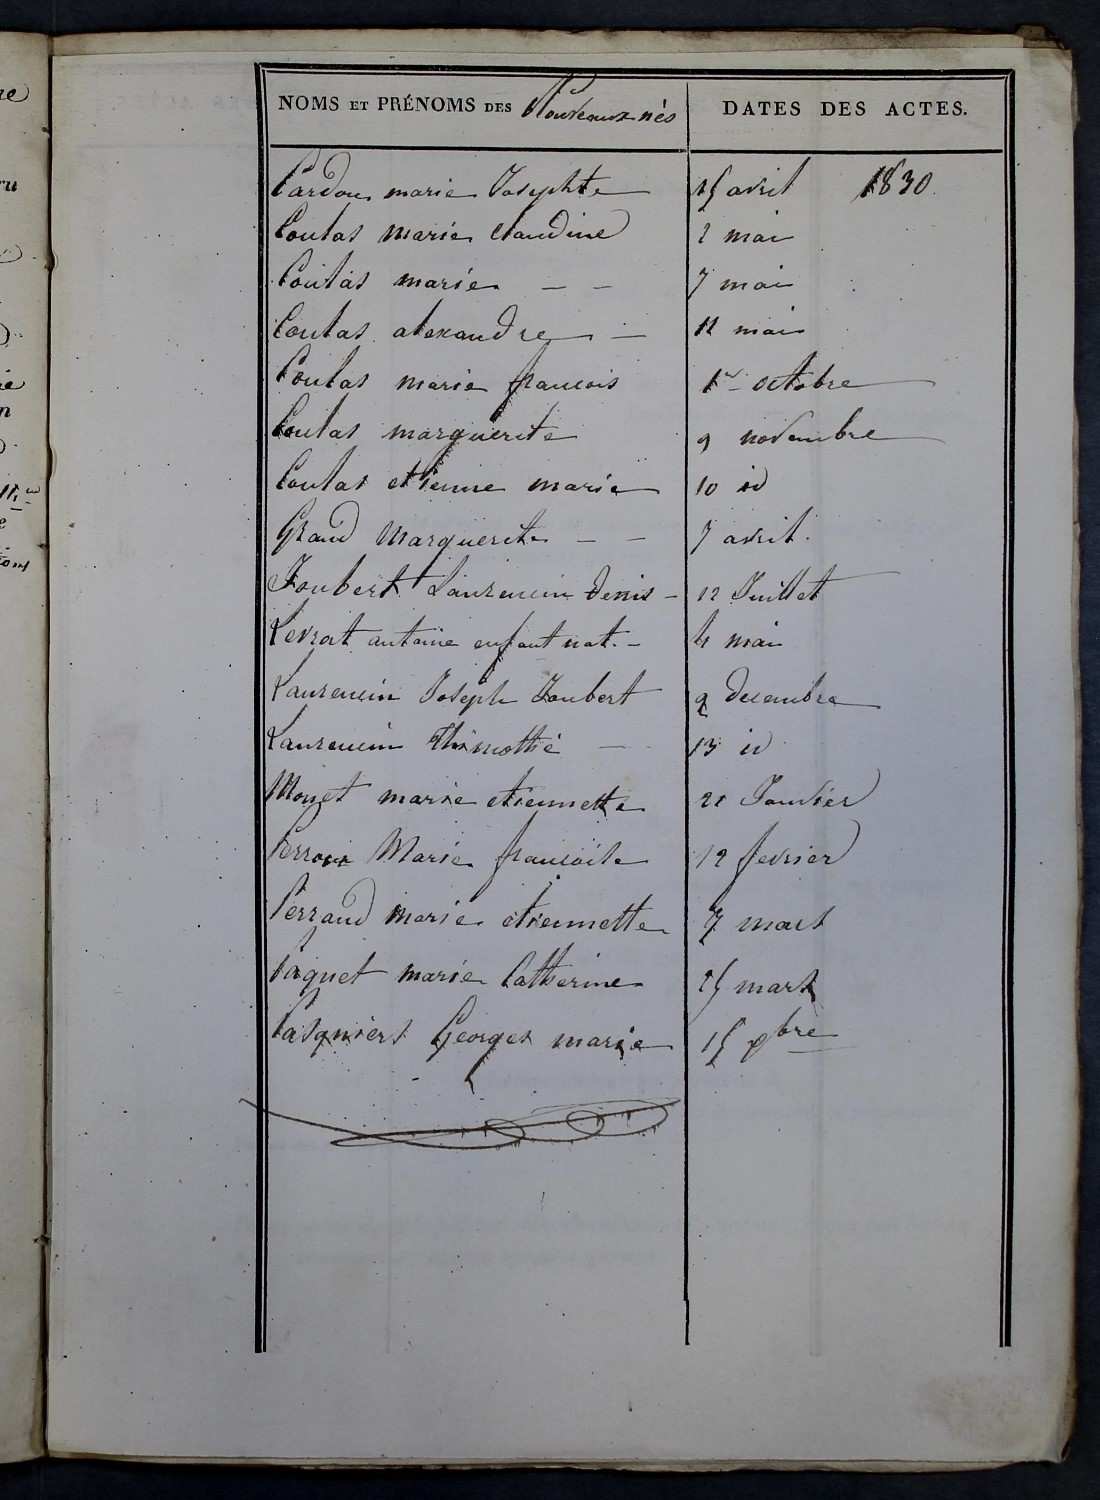 NOMS ET PRÉNOMS DES Nouveaux nés DATES DES ACTES.
Cardon marie Josephte 15 avril 1830
Coulas marie claudine 2 mai
Coulas marie — — 7 mai
Coulas alexandre — 12 mai
Coulas marie francois 1er octobre
Coulas marguerite 9 novembre
Coulas etienne marie 10 id
Grand Marguerite — — 7 avril.
Joubert Laurencin Denis — 12 Juillet
Levrat antoine enfant nat. — 4 mai
Laurencin Joseph Joubert 9 decembre
Laurencin Thimothé — 13 id
Monet marie etiennette 21 Janvier
Marie francoise 12 fevrier
Perraud marie etiennette 7 mars
Paquet marie Catherine 25 mars
Pasquiers Georges marie 15 bre